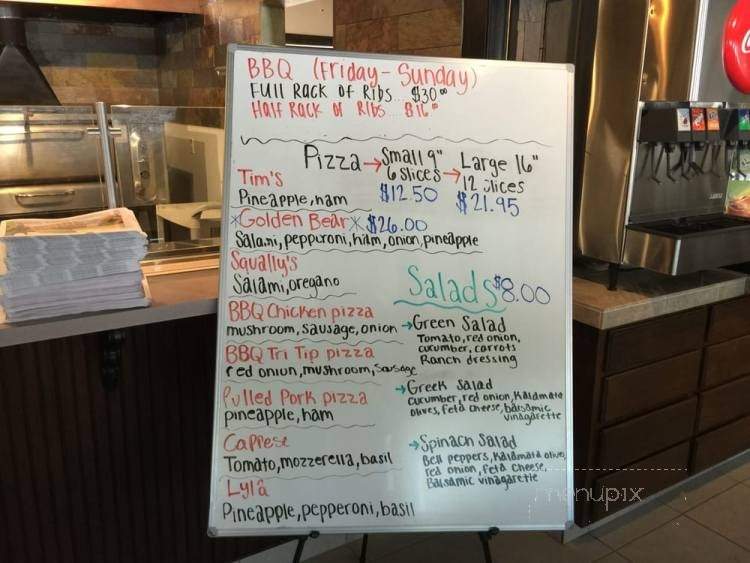 BBQ (Friday-Sunday)
Full Rack of Ribs... $30.00
Half Rack of Ribs... $16.00
Pizza → Small 9" → Large 16"
6 slices 12 slices
$12.50 $21.95
Tim's
Pineapple, ham
*Golden Bear* $26.00
Salami, pepperoni, ham, onion, pineapple
Squally's
Salami, oregano
BBQ Chicken pizza
mushroom, sausage, onion
BBQ Tri Tip pizza
red onion, mushroom, sausage
Pulled Pork pizza
pineapple, ham
Caprese
Tomato, mozzerella, basil
Lyla
Pineapple, pepperoni, basil
Salads $8.00
→ Green Salad
Tomato, red onion,
cucumber, carrots
Ranch dressing
→ Greek Salad
cucumber, red onion, Kalamata
olives, feta cheese, balsamic
vinagarette
→ Spinach Salad
Bell peppers, Kalamata olives,
red onion, feta cheese,
Balsamic vinagarette
menupix